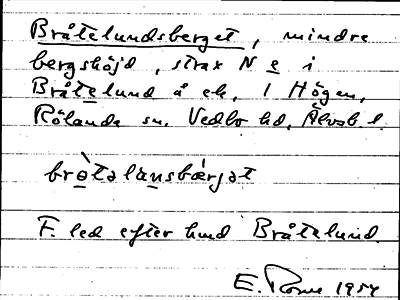 Bråtelundsberget, mindre
bergshöjd, strax N e i
Bråtelund å ek, 1 Högen,
Rölanda sn. Vedbo hd, Älvsb. l.
bròtalansbærjət
F. led efter hmd Bråtelund.
E. 1954